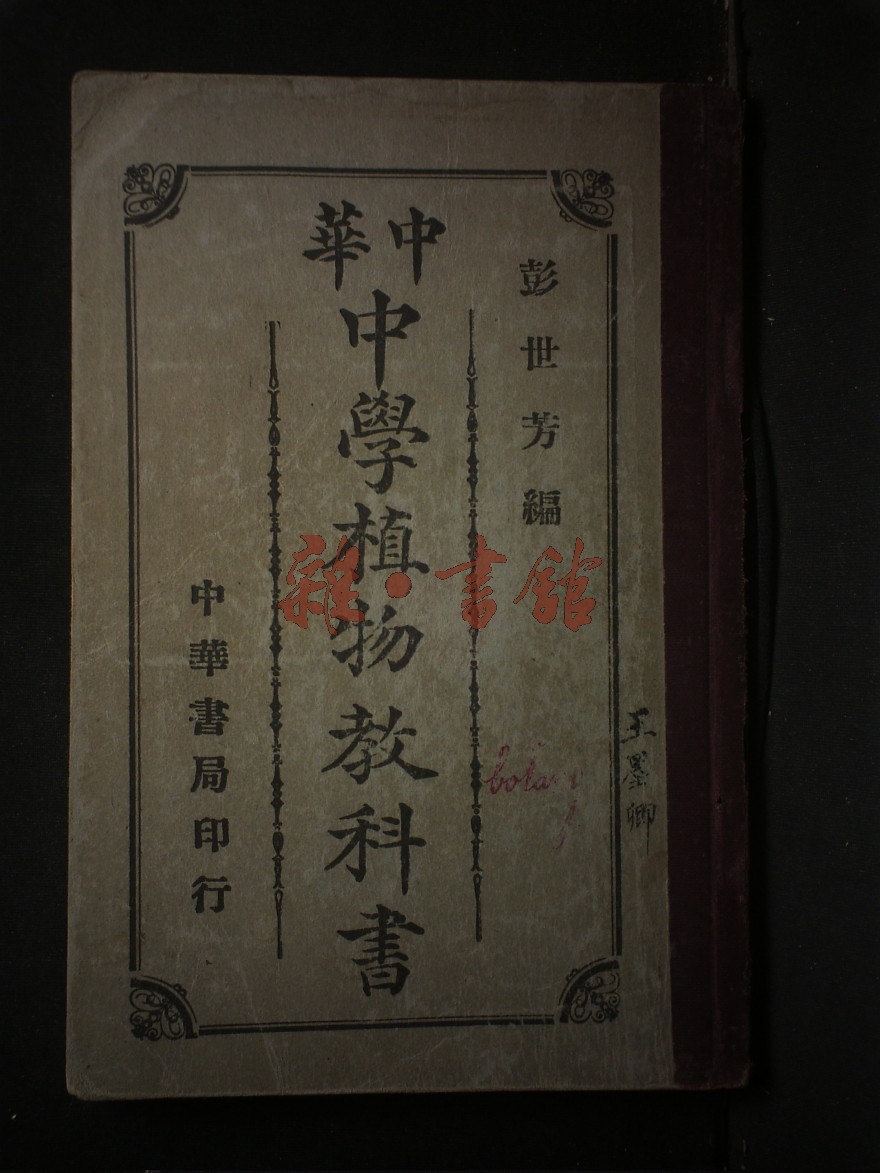 彭世芳編
中華
中學植物教科書
中華書局印行
雜·書館
botany
王墨卿